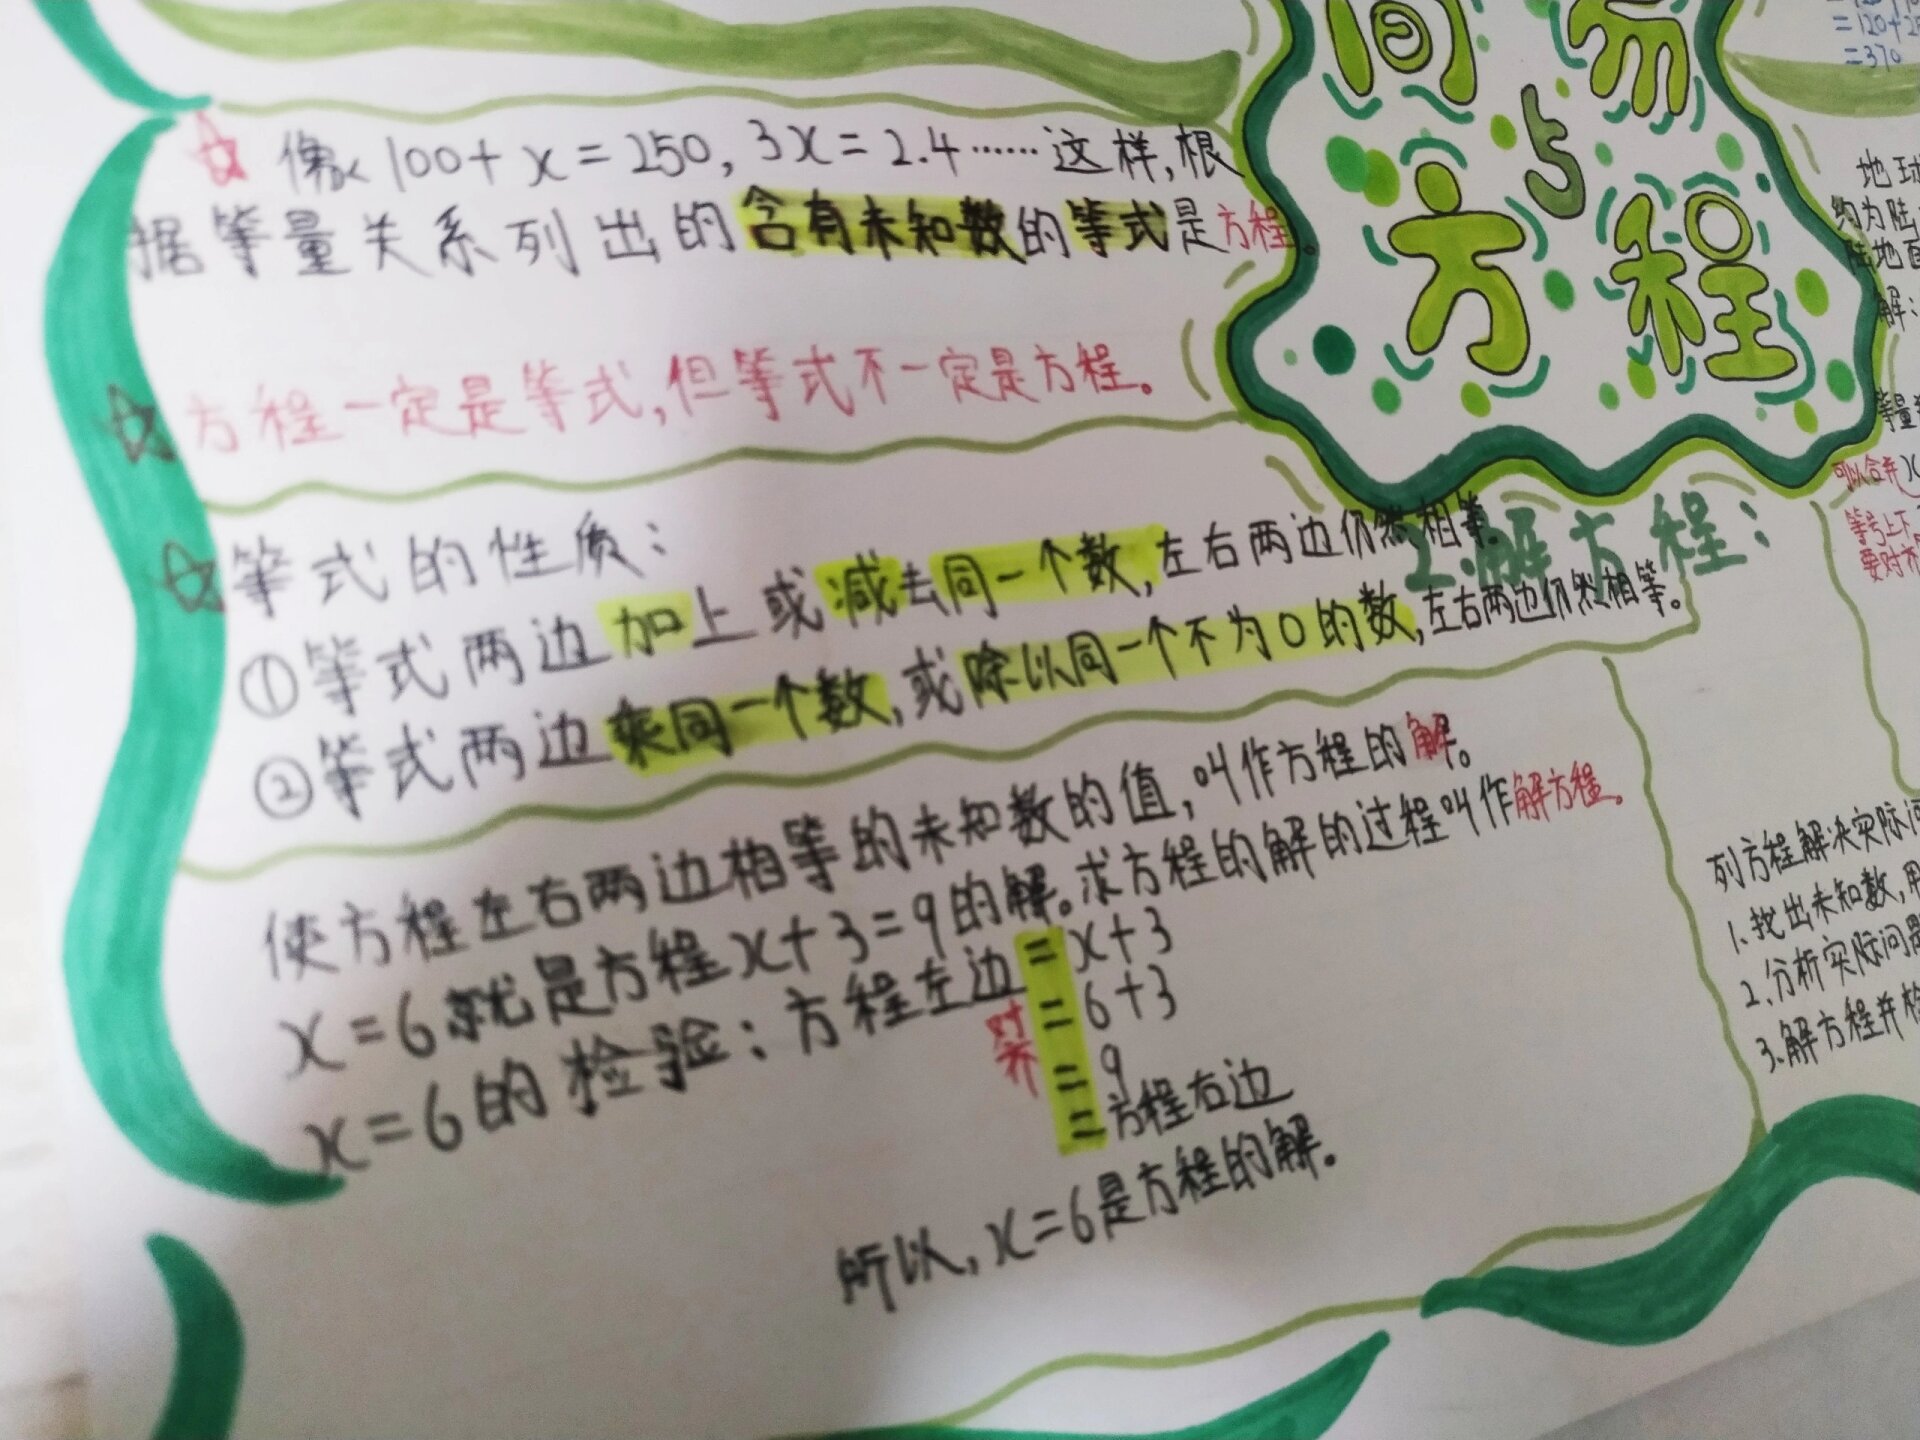 简易
与
方程
像 100+x=250, 3x=2.4……这样,根
据等量关系列出的含有未知数的等式是方程。
方程一定是等式,但等式不一定是方程。
等式的性质:
①等式两边加上或减去同一个数,左右两边仍然相等。
②等式两边乘同一个数,或除以同一个不为0的数,左右两边仍然相等。
2.解方程:
使方程左右两边相等的未知数的值,叫作方程的解。
x=6就是方程x+3=9的解。求方程的解的过程叫作解方程。
x=6的检验:方程左边=x+3
对齐
=6+3
=9
=方程右边
所以,x=6是方程的解。
=120+2
=370
地球
约为陆
陆地面
解:
等量
可以合并x
等号上下
要对齐
列方程解决实际问
1.找出未知数,用
2.分析实际问题
3.解方程并检